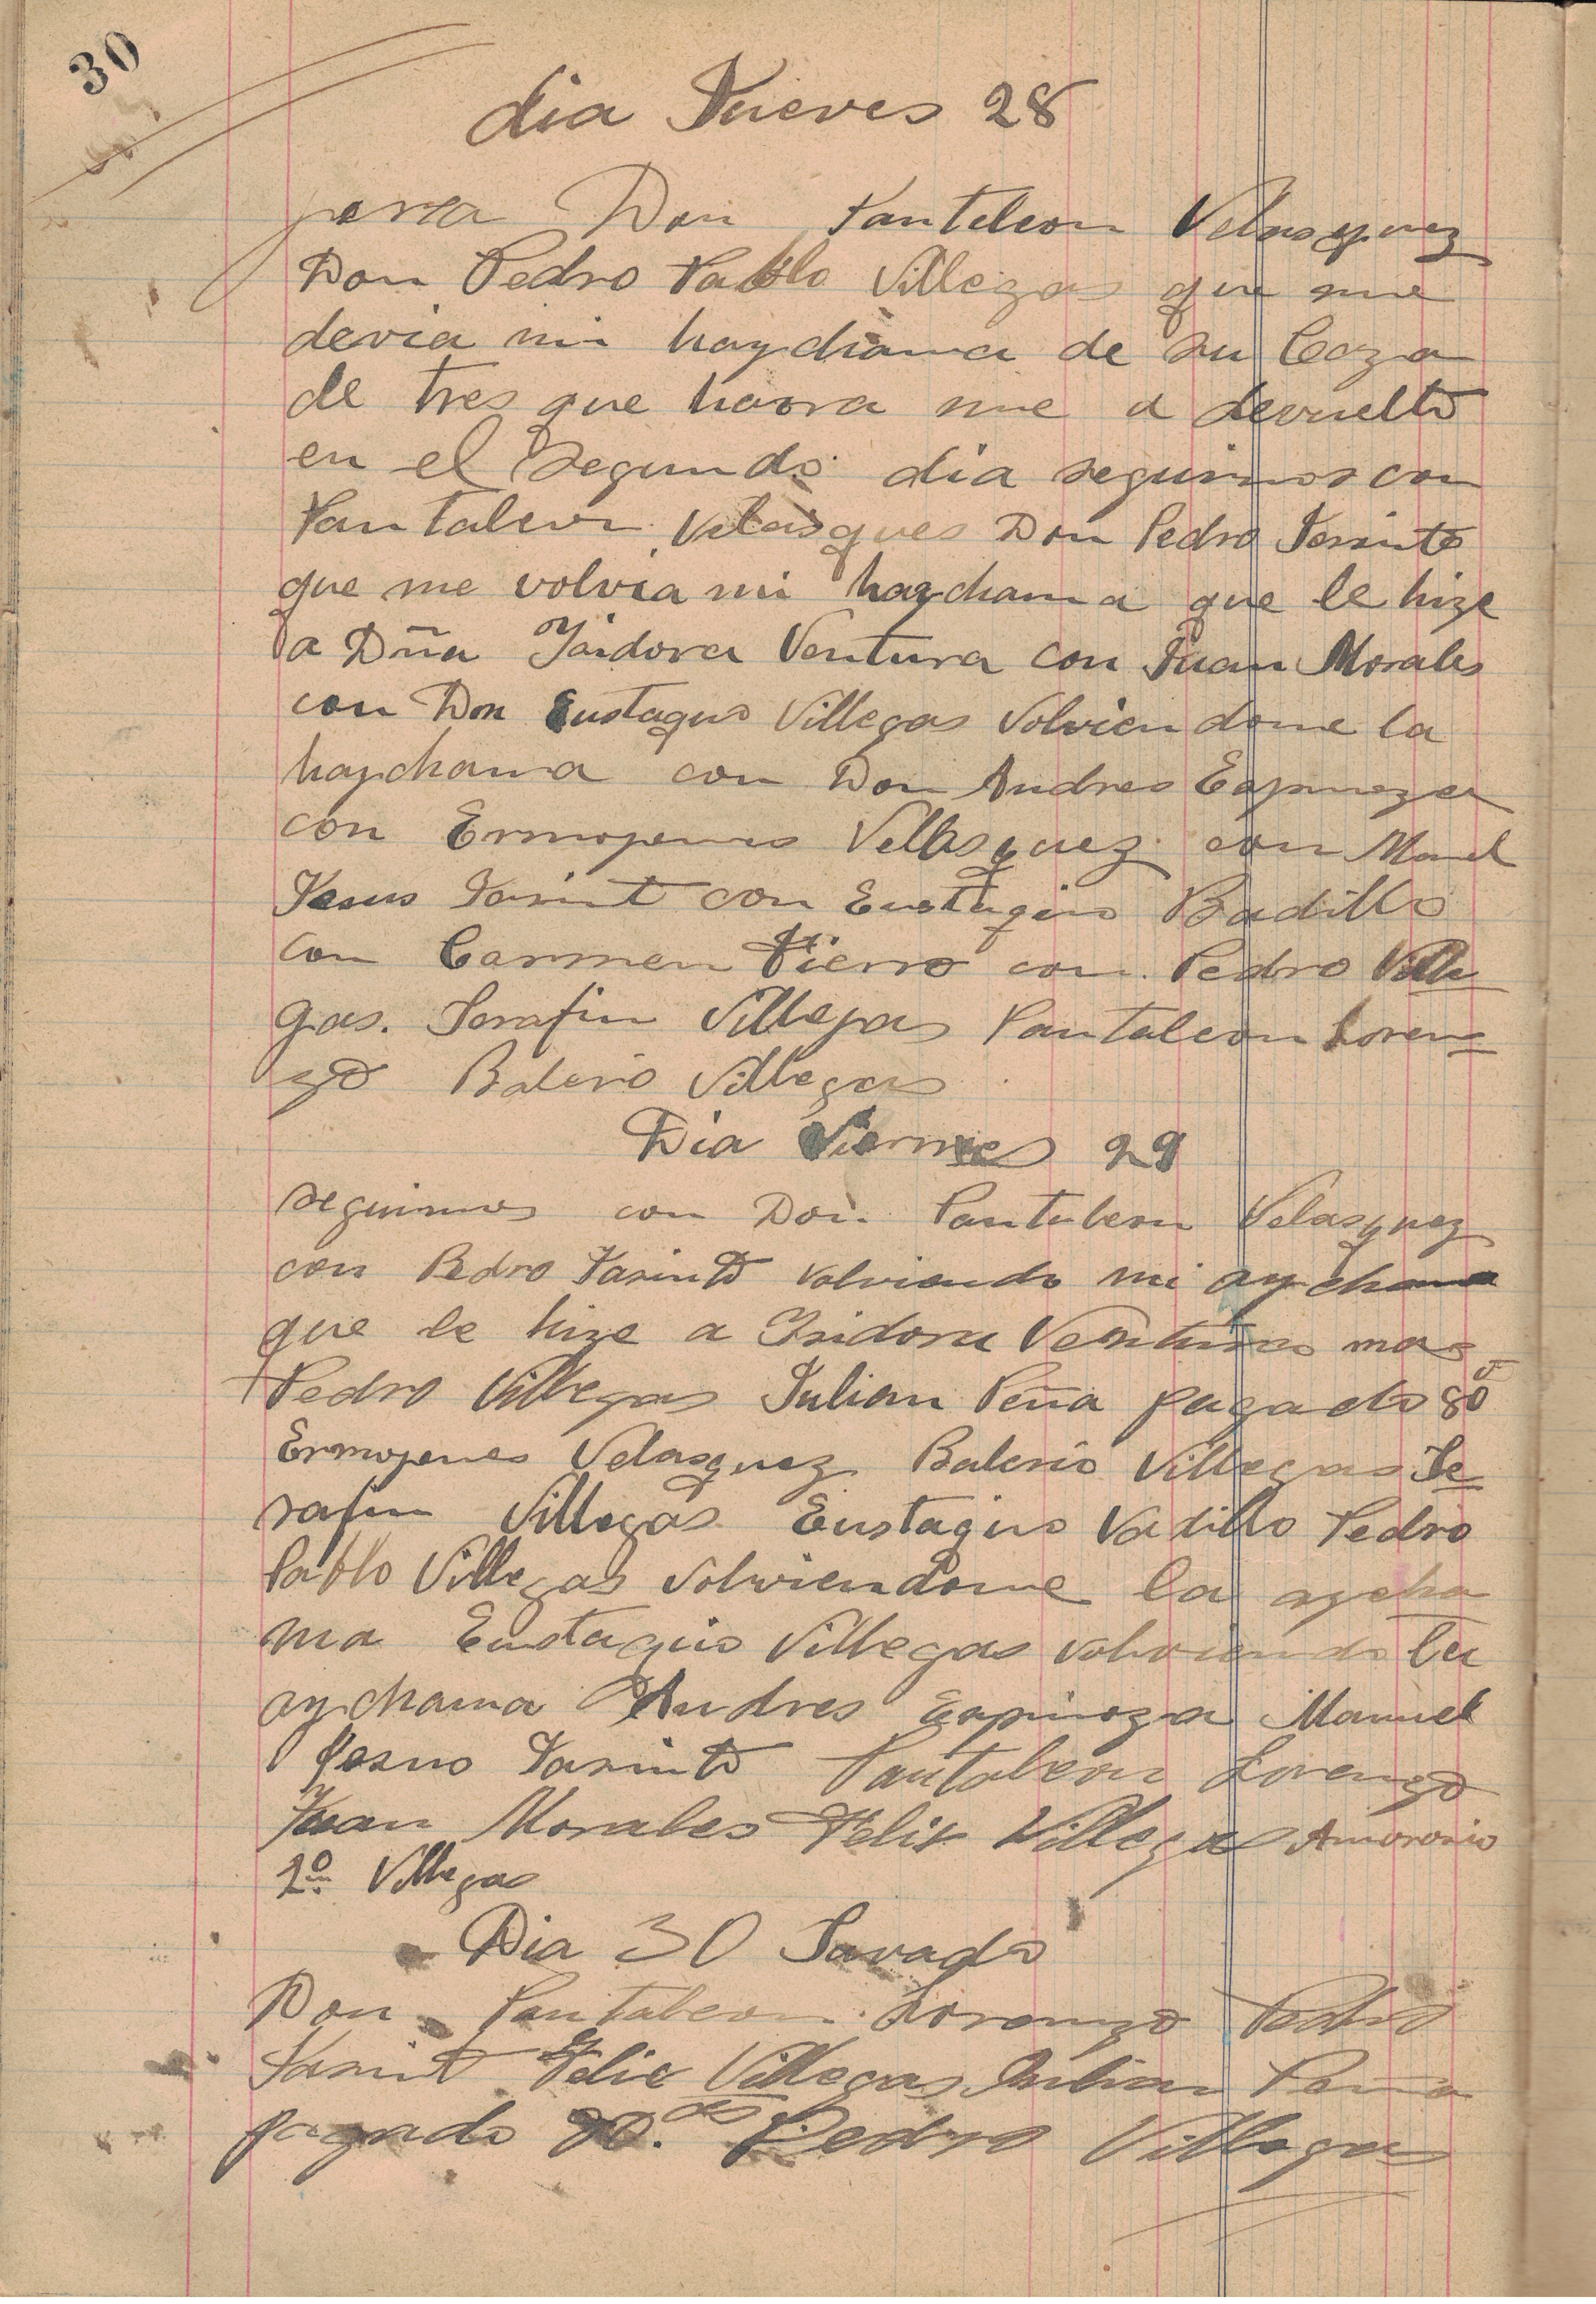 30
dia Jueves 28
para Don Panteleon Velasquez
Don Pedro Pablo Villegas que me
devia mi haychama de su Caza
de tres que haora me a devuelto
en el Segundo dia seguimos con
Pantaleon Velasques Don Pedro Jasinto
que me volvia mi haychama que le hize
a Dña Ysidora Ventura con Juan Morales
con Don Eustaquio Villegas Volviendome la
haychama con Don Andres Espinoza
con Ermojenes Vellasquez con Manel
Jesus Jasint con Eustaquio Badillo
con Carmen Fierro con Pedro Ville
gas. Serafin Villegas Pantaleon Loren
zo Balerio Villegas
Dia Viernes 29
seguimos con Don Pantaleon Velasquez
con Pedro Jasinto volviendo mi aychama
que le hize a Isidora Venturas mas
Pedro Villegas Julian Peña pagado 80
Ermojenes Velasquez Balerio Villegas Se
rafin Villegas Eustaquio Vadillo Pedro
Pablo Villegas volviendome la aycha
ma Eustaquio Villegas volviendo la
aychama Andres Espinoza Manuel
Jesus Jasinto Pantaleon Lorenzo
Juan Morales Felix Villegas
1º Villegas
Dia 30 Savado
Don Pantaleon Lorenzo Pedro
Jasint Felix Villegas Julian Pena
pagado Pedro Villegas